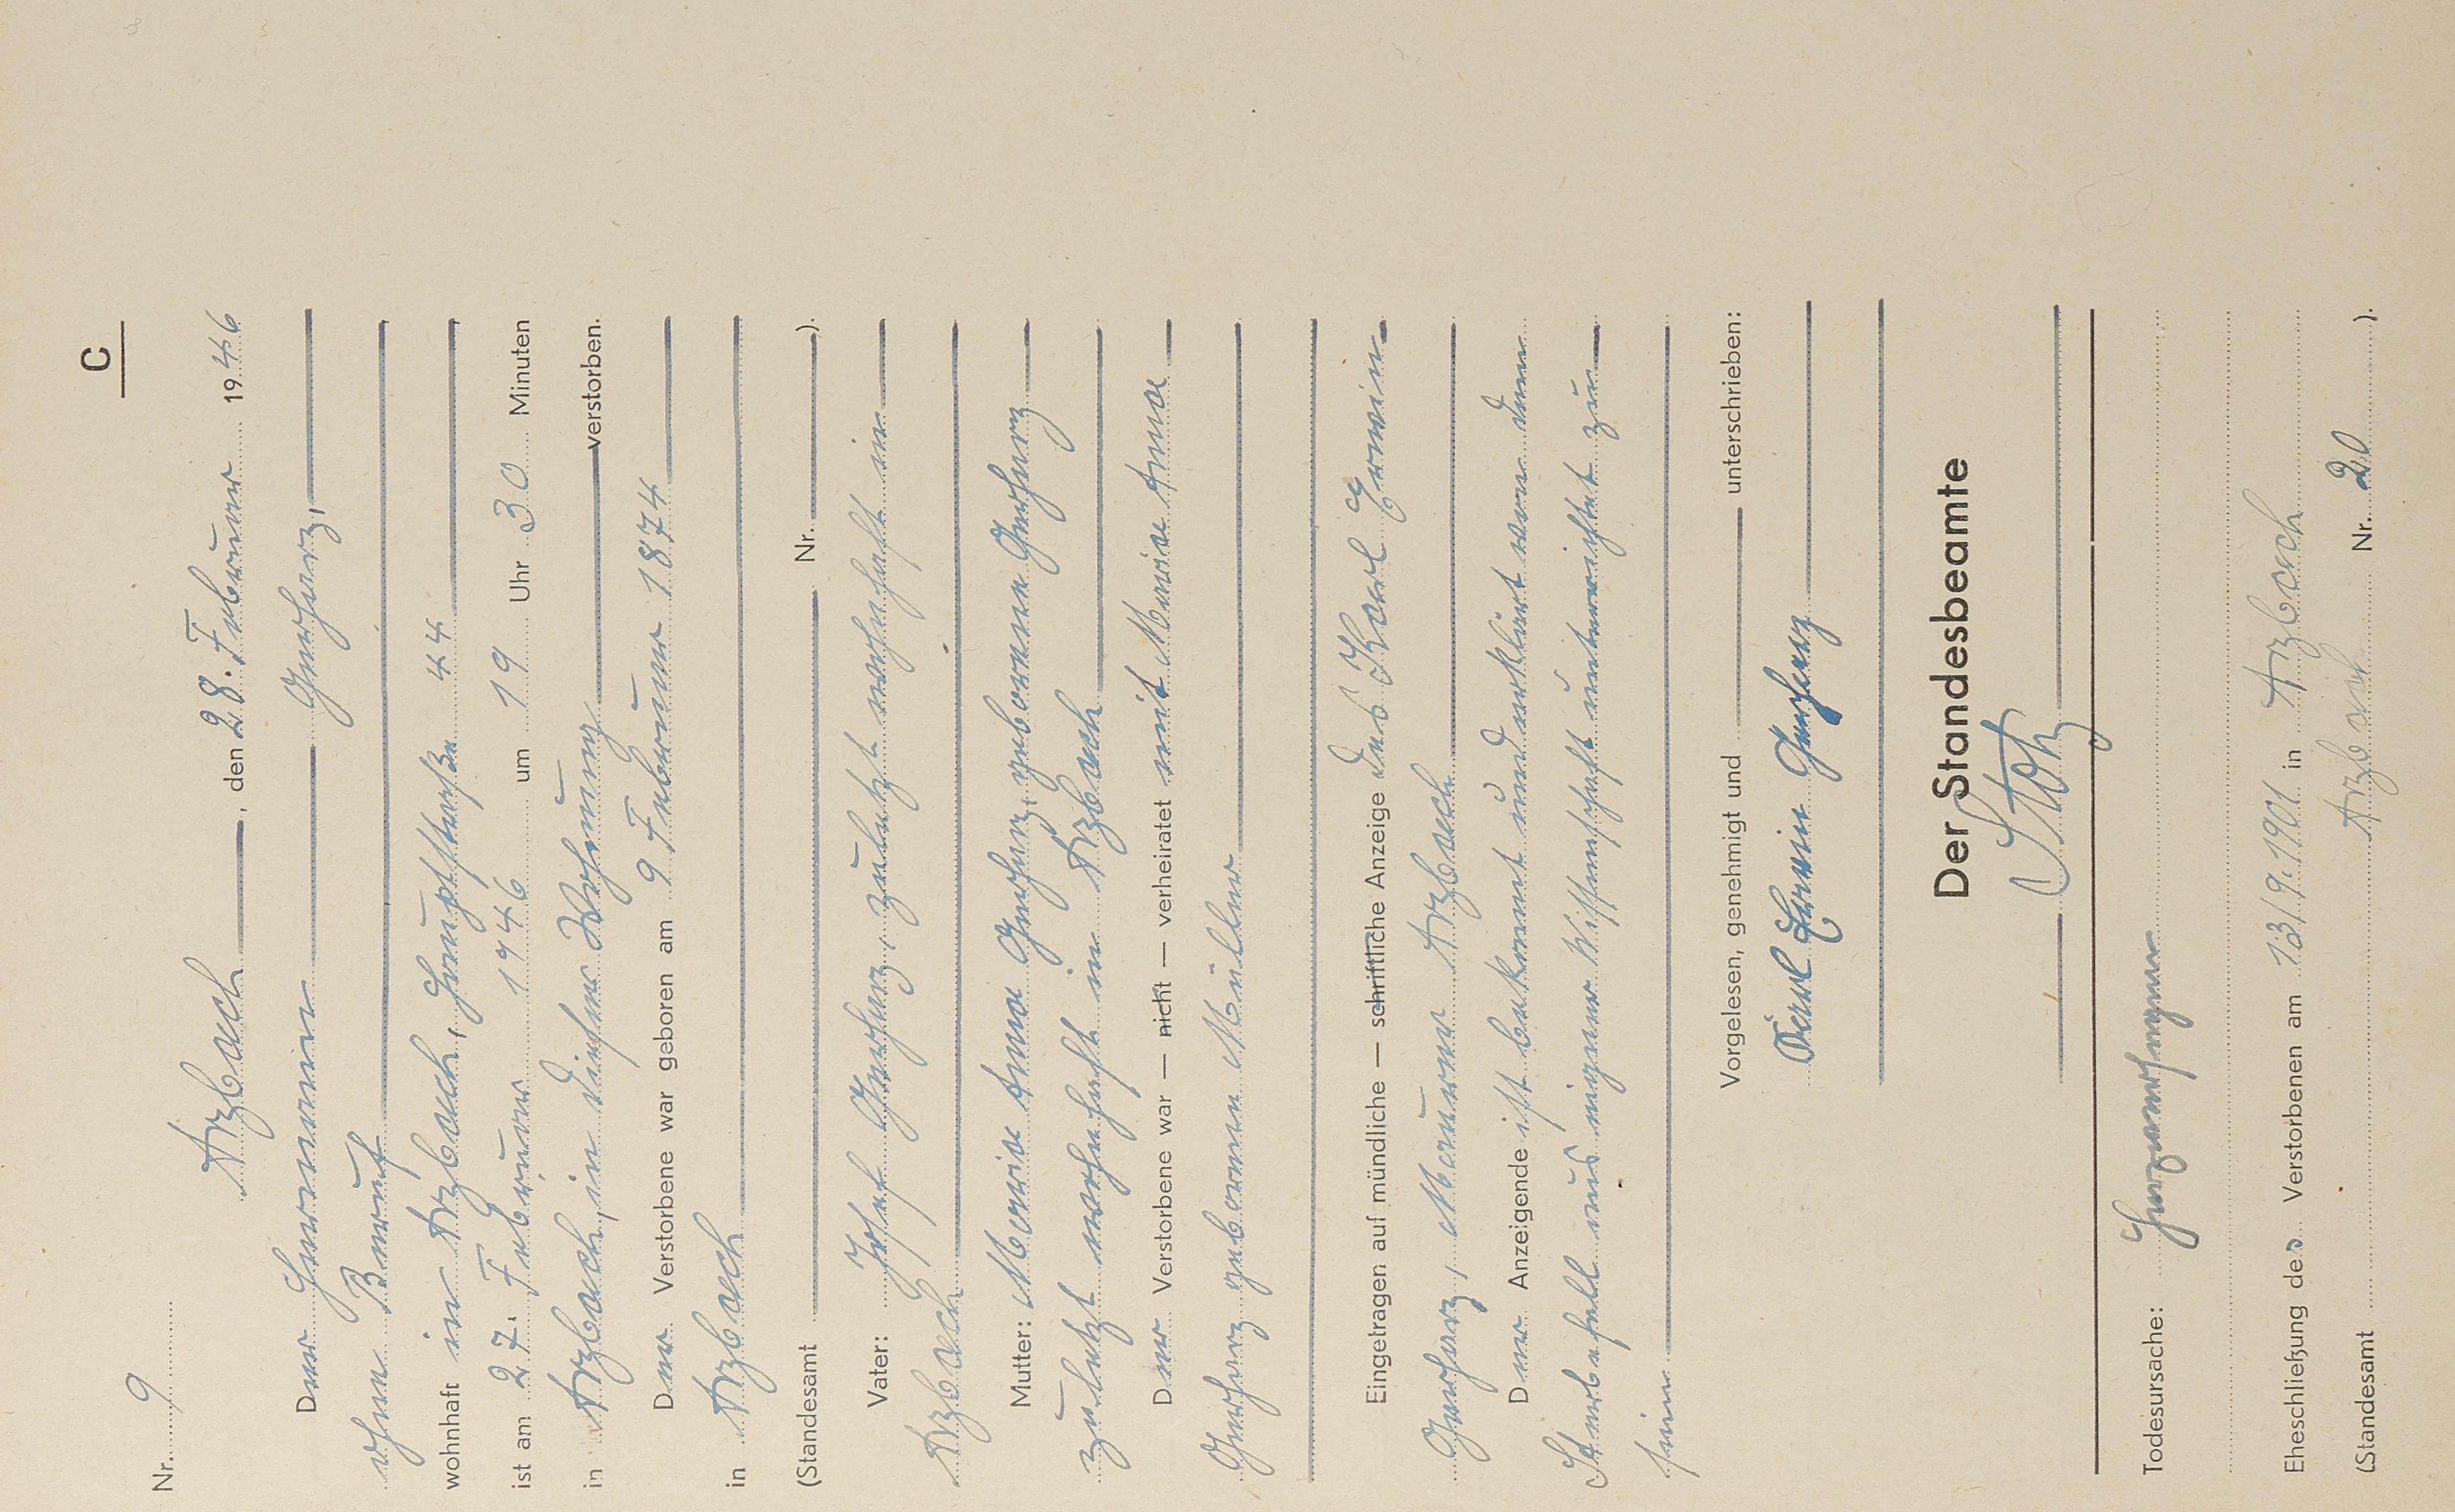 C
Nr. 9
Arzbach, den 28. Februar 1946
Der Hermann Gerharz,
ohne Beruf
wohnhaft in Arzbach, Hauptstraße 44
ist am 27. Februar 1946 um 19 Uhr 30 Minuten
in Arzbach, in dieser Wohnung verstorben.
Der Verstorbene war geboren am 9 Februar 1874
in Arzbach
(Standesamt Nr. ).
Vater: Josef Gerharz, zuletzt wohnhaft in
Arzbach
Mutter: Maria Anna Gerharz, geborene Gerharz
zuletzt wohnhaft in Arzbach
Der Verstorbene war — nicht — verheiratet mit Maria Anna
Gerharz geborenen Müller
Eingetragen auf mündliche — schriftliche Anzeige des Karl Erwin
Gerharz, Maurer Arzbach
Der Anzeigende ist bekannt und erklärt von dem
Sterbefall aus eigener Wissenschaft unterrichtet zu
sein
Vorgelesen, genehmigt und unterschrieben:
Karl Erwin Gerharz
Der Standesbeamte
Stotz
Todesursache:
Eheschließung des Verstorbenen am 13/9.1901 in Arzbach
(Standesamt Arzbach Nr. 20 ).